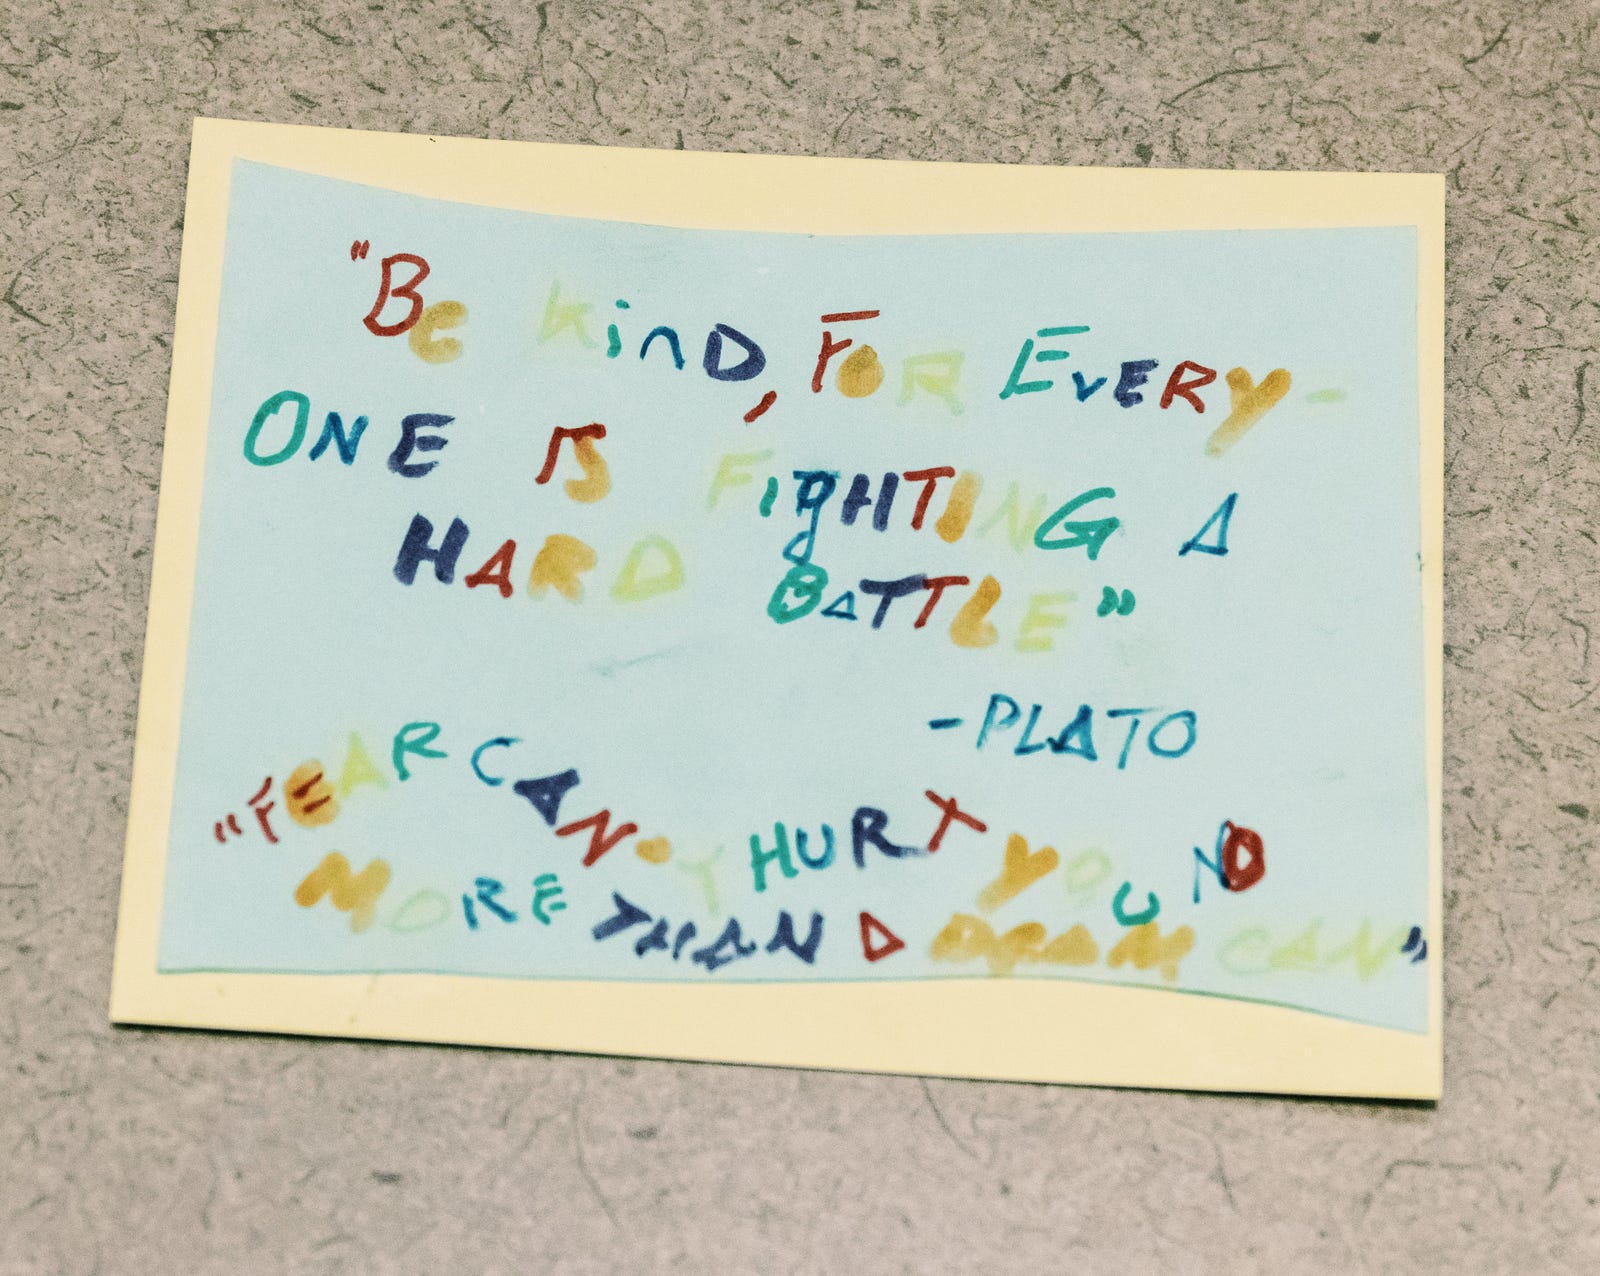 "Be kinD, FOR EVERY-
ONE IS FIgHTING A
HARD BATTLE"
-PLATO
"FEAR CAN'T HURT YOU NO
MORE THAN A DREAM CAN"